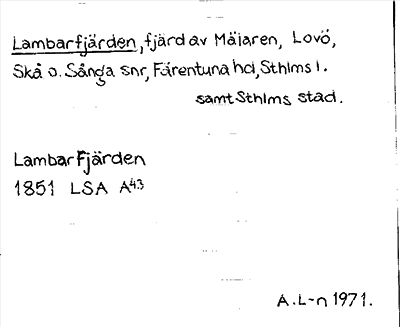 Lambarfjärden, fjärd av Mälaren, Lovö,
Skå o. Sånga snr, Färentuna hd, Sthlms l.
samt Sthlms stad.
Lambar Fjärden
1851 LSA A43
A.L-n 1971.